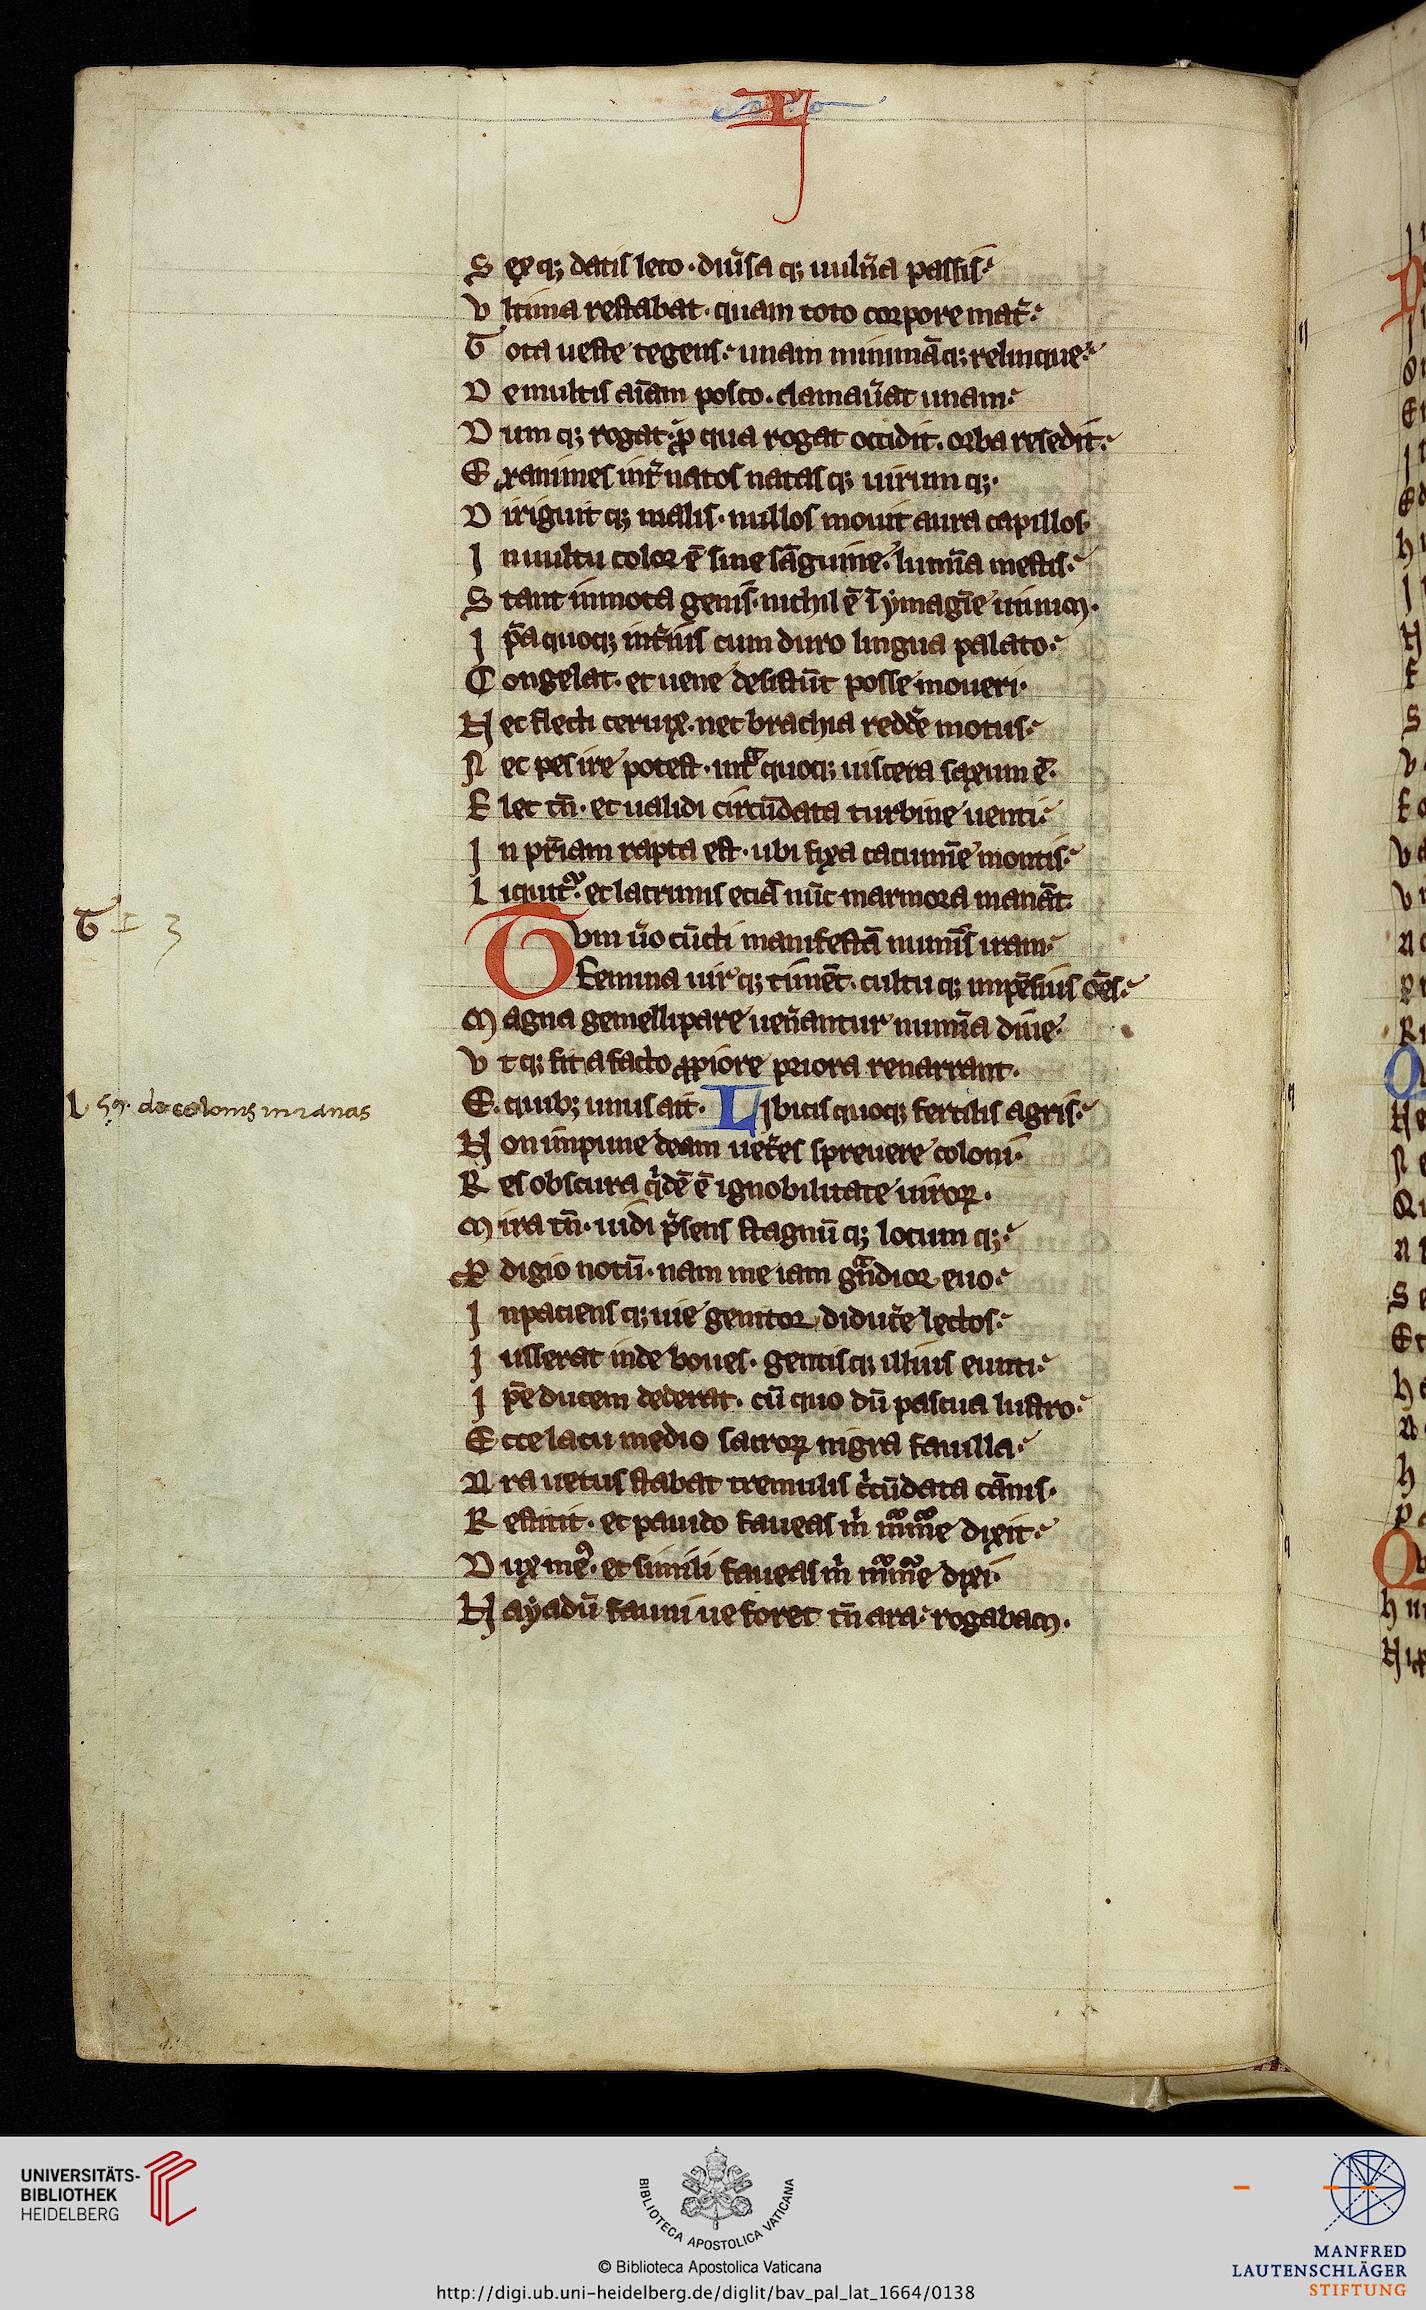 S ex qꝫ datis leto · diũsa qꝫ uulña passis
V ltima restabat · quam toto corpore mat̃
T ota ueste tegens · unam minimãqꝫ relinque
D e multis aĩam posco · clamaũat unam
D um qꝫ rogat · ꝓ qua rogat occidit · orba resedit
E xanimes int̃ natos natas qꝫ uirum qꝫ ·
D iriguit qꝫ malis · nullos mouit aura capillos
I n uultu color ẽ sine sãguine · lumĩa mestis
S tant inmota genis · nichil ẽ ĩ ymagĩe uiuum ·
I p̃a quoqꝫ int̃ius cum duro lingua palato
C ongelat · et uene desistũt posse moueri ·
N ec flecti ceruix · nec brachia redde᷑ motus
N ec pes ire potest · int̃ quoqꝫ uiscera saxum ẽ ·
F let tñ · et ualidi circũdata turbine uenti
I n pr̃iam rapta est · ubi fixa cacumĩe montis
L iquit᷑ · et lacrimis eciã nũc marmora manãt
T vm ũo cũcti manifestã numĩs iram
Femina uir qꝫ timẽt · cultu qꝫ impẽsius ões
M agna gemellipare uenãntur numĩa diue
V t qꝫ fit a facto ꝓpiore priora renarrant ·
E . quibꝫ unus ait · Libicis quoqꝫ fertilis agris
N on impune deam uet̃es spreuere coloni ·
R es obscura qͥdẽ ẽ ignobilitate uiroꝝ ·
M ira tñ · uidi p̃sens stagnũ qꝫ locum qꝫ
Ꝓ digio notũ · nam me iam gͣndior euo
I npaciens qꝫ uie genitor diduce᷑ lectos
I usserat inde boues · gentis qꝫ illius eunti
I p̃e ducem dederat · cũ quo dũ pascua lustro
E cce lacu medio sacroꝝ nigra fauilla
A ra uetus stabat tremulis cͥcũdata cãnis ·
R estitit · et pauido faueas mͥ mᷓmᷓe dixit
D ux me᷒ · et simili faueas mͥ mᷓmᷓe dixi ·
N ayadũ fauni ue foret tñ ara · rogabam ·
T
L hꝫ. de colonis in ranas
UNIVERSITÄTS-
BIBLIOTHEK
HEIDELBERG
BIBLIOTECA APOSTOLICA VATICANA
© Biblioteca Apostolica Vaticana
http://digi.ub.uni-heidelberg.de/diglit/bav_pal_lat_1664/0138
MANFRED
LAUTENSCHLÄGER
STIFTUNG